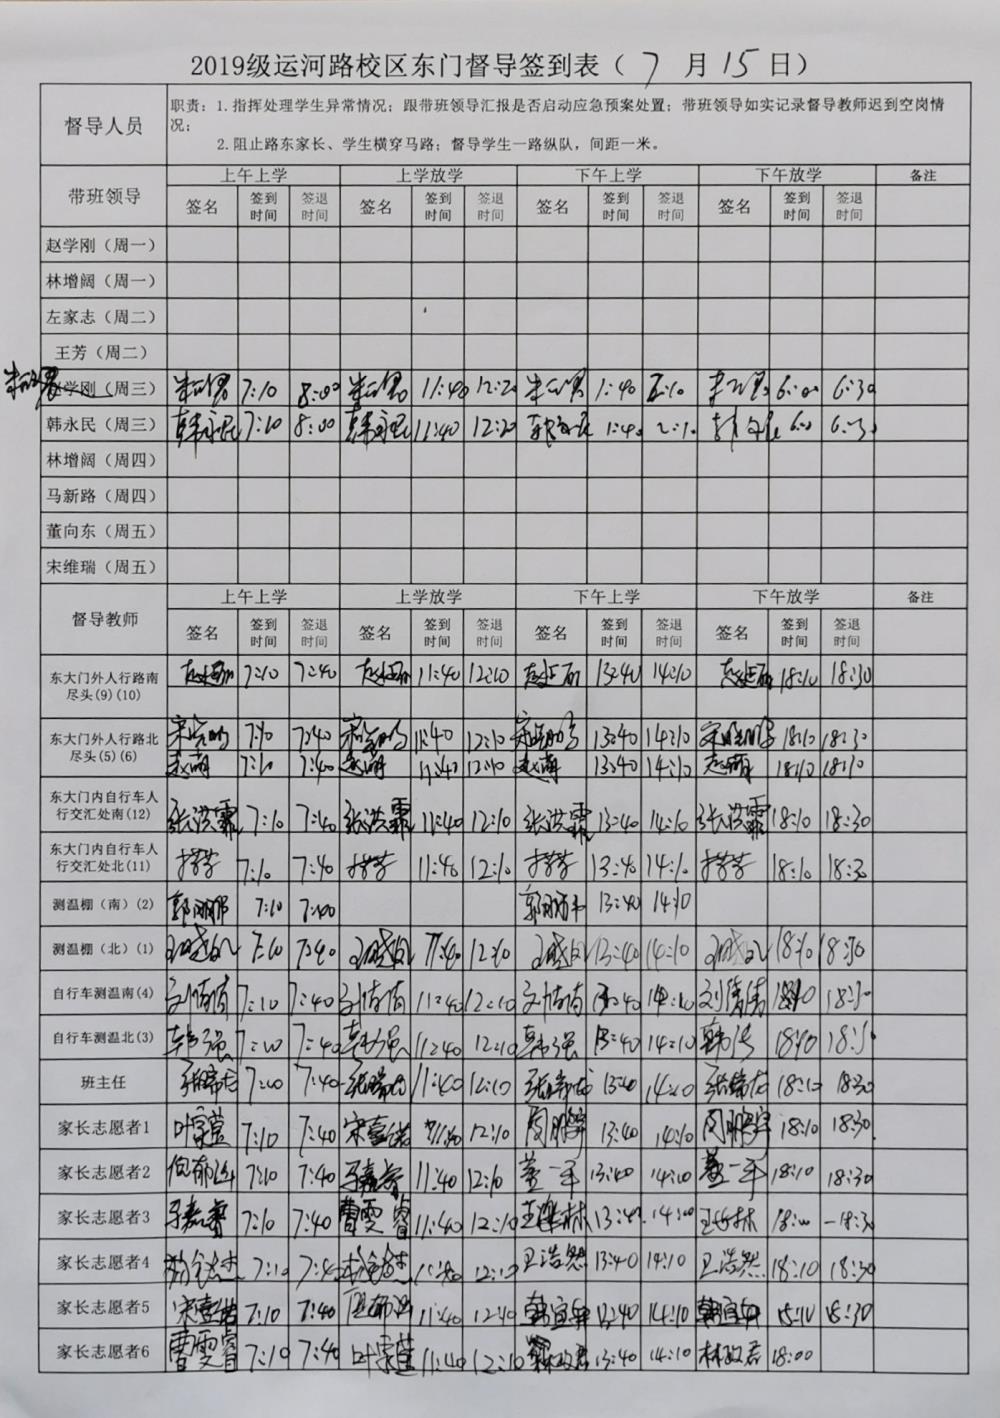 2019级运河路校区东门督导签到表（7月15日）
督导人员
职责：1.指挥处理学生异常情况；跟带班领导汇报是否启动应急预案处置；带班领导如实记录督导教师迟到空岗情
况；
2.阻止路东家长、学生横穿马路；督导学生一路纵队，间距一米。
带班领导 上午上学 上学放学 下午上学 下午放学 备注
签名 签到时间 签退时间 签名 签到时间 签退时间 签名 签到时间 签退时间 签名 签到时间 签退时间
赵学刚（周一）
林增阔（周一）
左家志（周二）
王芳（周二）
赵学刚（周三） 7:10 8:00 11:40 12:20 1:40 2:10 6:00 6:30
韩永民（周三） 韩永民 7:10 8:00 韩永民 11:40 12:20 韩永民 1:40 2:10 韩永民 6:00 6:30
林增阔（周四）
马新路（周四）
董向东（周五）
宋维瑞（周五）
督导教师 上午上学 上学放学 下午上学 下午放学 备注
签名 签到时间 签退时间 签名 签到时间 签退时间 签名 签到时间 签退时间 签名 签到时间 签退时间
东大门外人行路南
尽头(9)(10) 7:10 7:40 11:40 12:10 13:40 14:10 18:10 18:30
东大门外人行路北
尽头(5)(6) 7:10 7:40 11:40 12:10 13:40 14:10 18:10 18:30
赵萌 7:10 7:40 赵萌 11:40 12:10 赵萌 13:40 14:10 赵萌 18:10 18:10
东大门内自行车人
行交汇处南(12) 张洪霏 7:10 7:40 张洪霏 11:40 12:10 张洪霏 13:40 14:10 张洪霏 18:10 18:30
东大门内自行车人
行交汇处北(11) 7:10 7:40 11:40 12:10 13:40 14:10 18:10 18:30
测温棚（南）(2) 7:10 7:40 13:40 14:10
测温棚（北）(1) 7:10 7:40 11:40 12:10 13:40 14:10 18:10 18:30
自行车测温南(4) 刘倩倩 7:10 7:40 刘倩倩 11:40 12:10 刘倩倩 13:40 14:10 刘倩倩 18:10 18:30
自行车测温北(3) 韩强 7:10 7:40 韩强 11:40 12:10 韩强 13:40 14:10 18:10 18:30
班主任 7:10 7:40 11:40 12:10 13:40 14:10 18:10 18:30
家长志愿者1 叶宗萱 7:10 7:40 宋萱诺 11:40 12:10 周鹏宇 13:40 14:10 周鹏宇 18:10 18:30
家长志愿者2 7:10 7:40 马嘉睿 11:40 12:10 董一平 13:40 14:10 董一平 18:10 18:30
家长志愿者3 马嘉睿 7:10 7:40 曹雯睿 11:40 12:10 13:40 14:10 18:00 18:30
家长志愿者4 7:10 7:40 11:40 12:10 王浩然 13:40 14:10 王浩然 18:10 18:30
家长志愿者5 宋萱诺 7:10 7:40 11:40 12:10 韩宜轩 13:40 14:10 韩宜轩 18:10 18:30
家长志愿者6 曹雯睿 7:10 7:40 叶宗萱 11:40 12:10 林政君 13:40 14:10 林政君 18:00